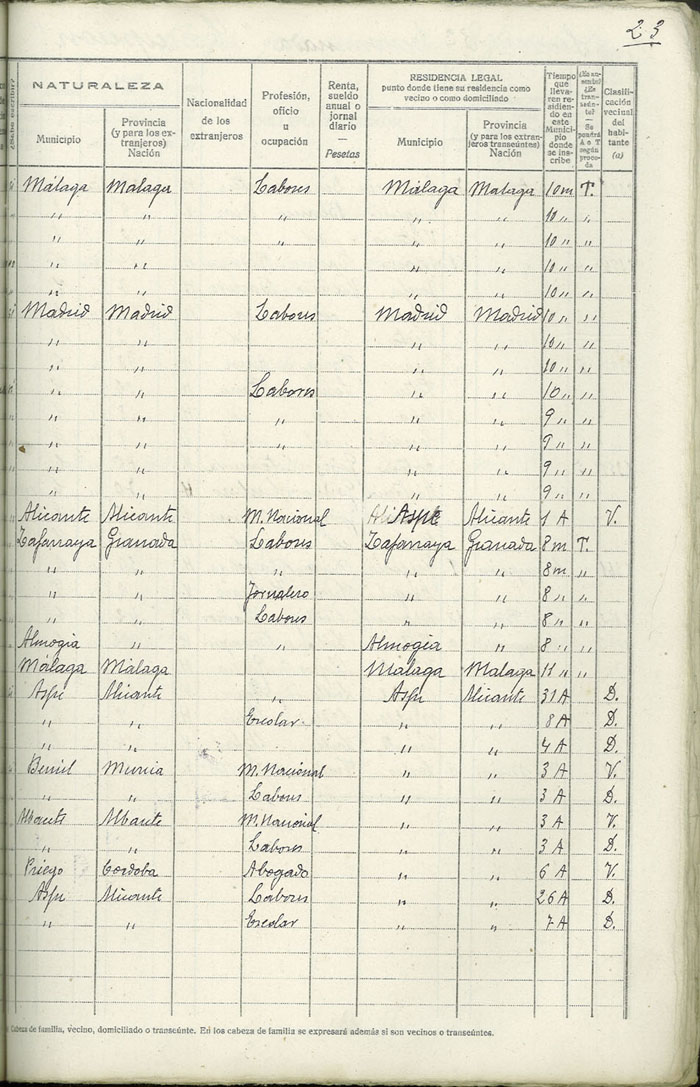 23
¿Sabe escribir?
NATURALEZA
Municipio
Provincia (y para los extranjeros) Nación
Nacionalidad de los extranjeros
Profesión, oficio u ocupación
Renta, sueldo anual o jornal diario — Pesetas
RESIDENCIA LEGAL
punto donde tiene su residencia como vecino o como domiciliado
Municipio
Provincia (y para los extranjeros transeúntes) Nación
Tiempo que lleva-ren residiendo en este Municipio donde se inscribe
¿Es ausente? ¿Es transeúnte? — Se pondrá A o T según proceda
Clasificación vecinal del habitante (a)
Málaga Malaga Labores Málaga Malaga 10 m T.
" " " " " 10 " "
" " " " " 10 " "
" " " " 10 " "
" " " " 10 " "
Madrid Madrid Labores Madrid Madrid 10 " "
" " " " 10 " "
" " " " 10 " "
" " Labores " " 10 " "
" " " " " 9 " "
" " " " " 9 " "
" " " " 9 " "
" " " " 9 " "
Alicante Alicante M. Nacional Aspe Alicante 1 A V.
Zafarraya Granada Labores Zafarraya Granada 8 m T.
" " " " 8 m "
" " Jornalero " " 8 " "
" " Labores " " 8 " "
Almogia " " Almogia " 8 " "
Málaga Málaga Malaga Malaga 11 " "
Aspe Alicante " Aspe Alicante 31 A D.
" " Escolar " " 8 A D.
" " " " 4 A D.
Beniel Murcia M. Nacional " " 3 A V.
" " Labores " " 3 A D.
Albacete Albacete M. Nacional " " 3 A V.
" " Labores " " 3 A D.
Priego Cordoba Abogado " " 6 A V.
Aspe Alicante Labores " " 26 A D.
" " Escolar " " 7 A D.
Cabeza de familia, vecino, domiciliado o transeúnte. En los cabeza de familia se expresará además si son vecinos o transeúntes.